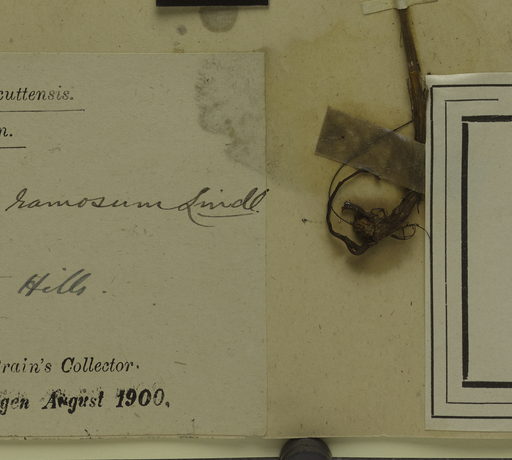 cuttensis.
n.
ramosum Lindl.
Hills.
rain's Collector.
gen August 1900.